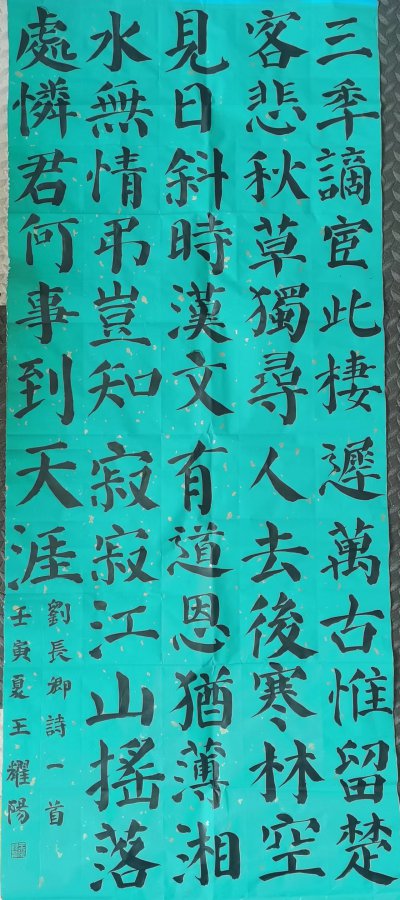 三秊謫宦此棲遲萬古惟留楚
客悲秋草獨尋人去後寒林空
見日斜時漢文有道恩猶薄湘
水無情弔豈知寂寂江山搖落
處憐君何事到天涯
劉長卿詩一首
壬寅夏王耀陽